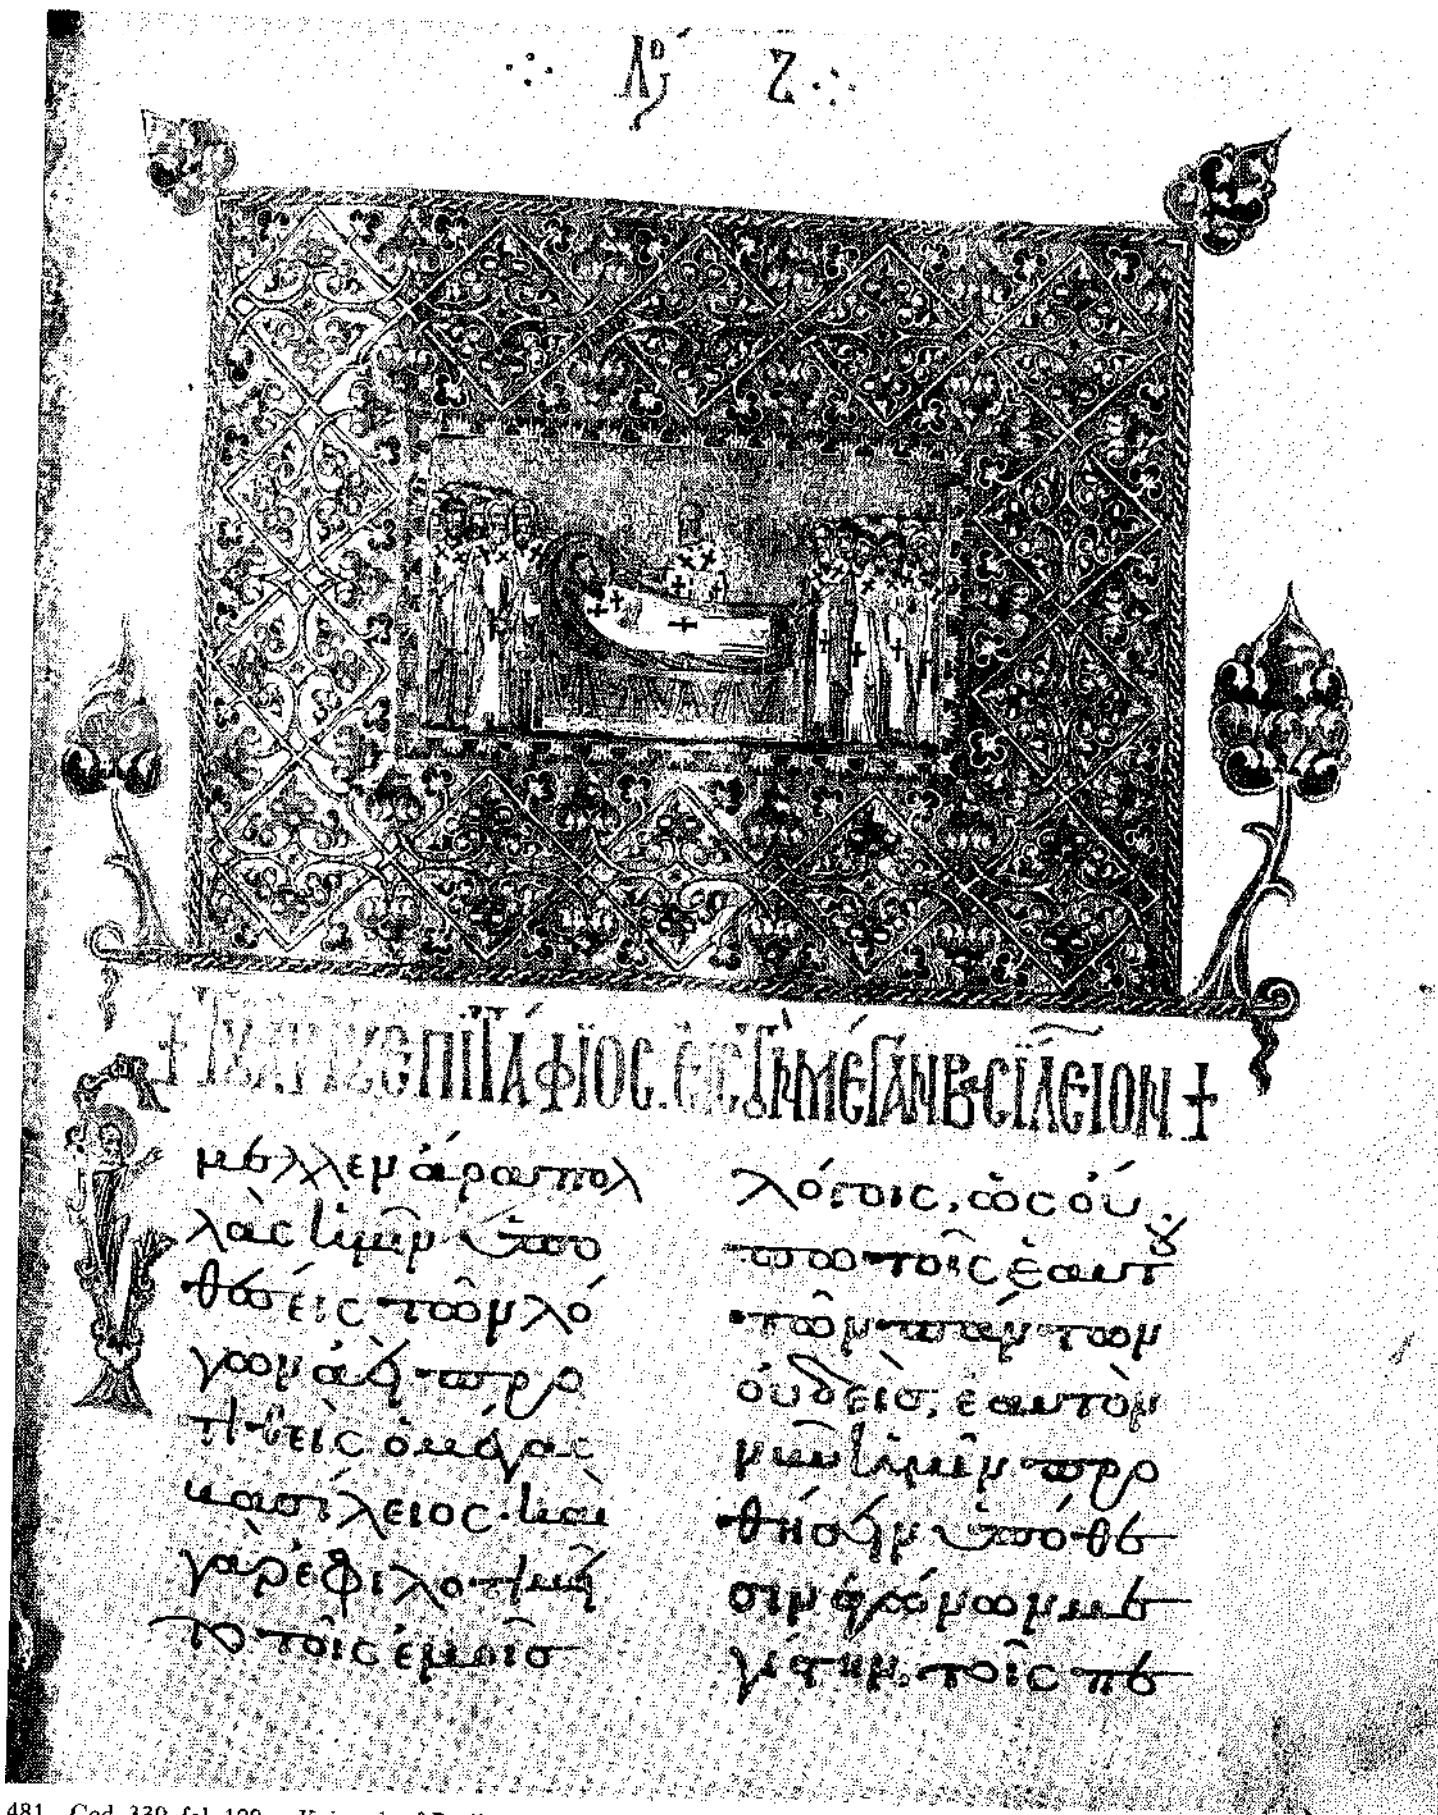 Λό Ζ
ἐπιτάφιος εἰς τὸν μέγαν βασίλειον +
μελλεν ἄρα πολ
λὰς ἡμῖν ὑπο
θέσεις τῶν λό
γων ἀεὶ προ
τιθεὶς ὁ μέγας
βασίλειος· καὶ
γὰρ ἐφιλοτιμεῖ
το τοῖς ἐμοῖς
λόγοις, ὡς οὔ
πω τοῖς ἑαυτοῦ
τῶν πάντων
οὐδεὶς, ἑαυτὸν
νῦν ἡμῖν προ
θήσειν ὑπόθε
σιν ἀγώνων με
γίστην, τοῖς πε
481. Cod. 339, fol. 109